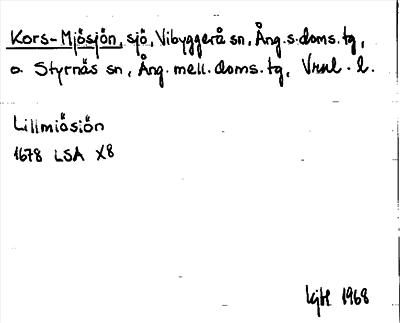 Kors-Mjösjön, sjö, Vibyggerå sn, Ång. s. doms. tg,
o. Styrnäs sn, Ång. mell. doms. tg, Vrnl. l.
Lillmiösiön
1678 LSA X8
1968